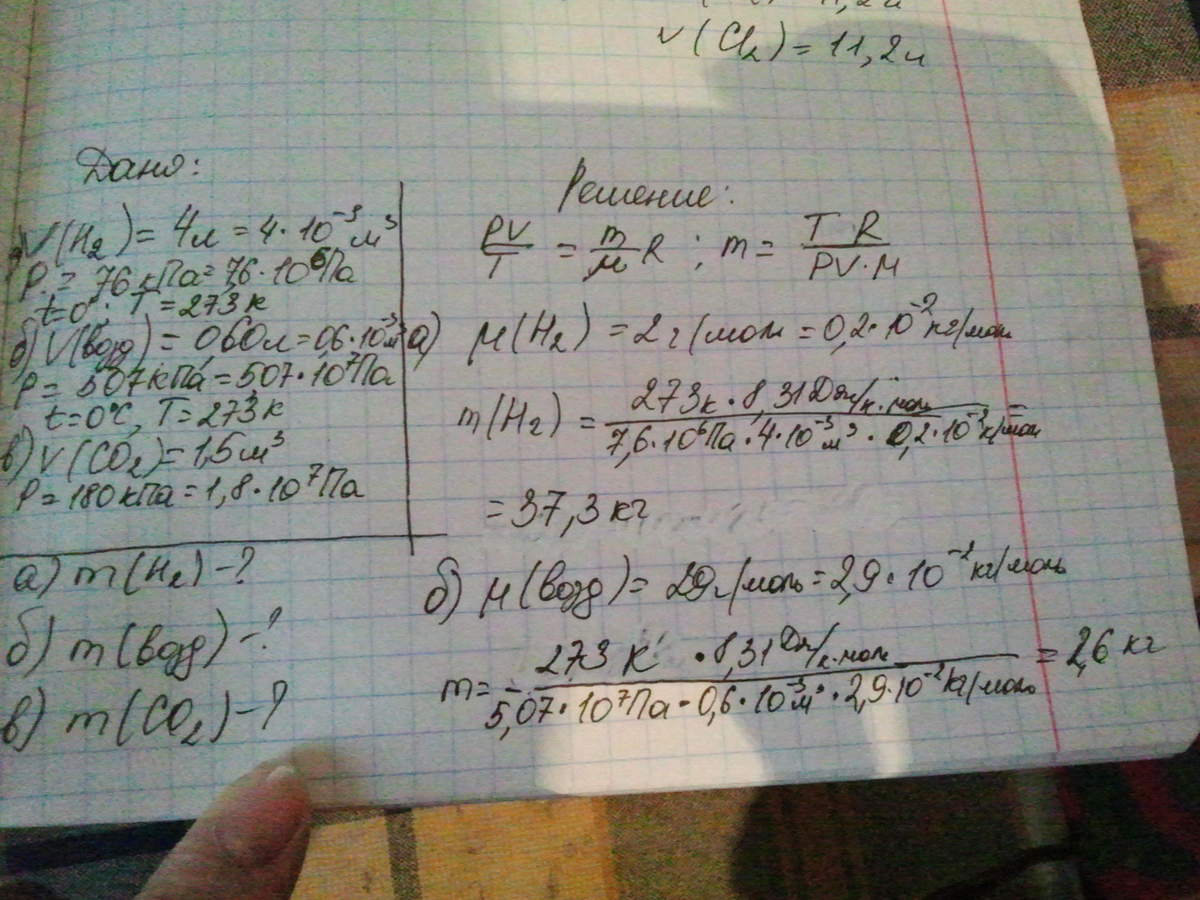 V(Cl₂) = 11,2л
Дано:
Решение:
V(H₂) = 4л = 4·10⁻³м³
P = 76 кПа = 7,6·10⁶Па
t=0° T = 273 к
б) V(возд) = 0,60л = 0,6·10⁻³м³
P = 507кПа = 5,07·10⁷Па
t=0°C, T = 273 к
в) V(CO₂) = 1,5м³
P = 180 кПа = 1,8·10⁷Па
а) m(H₂) - ?
б) m(возд) - ?
в) m(CO₂) - ?
PV/T = m/μ R ; m = T R/PV·M
а) μ(H₂) = 2 г/мол = 0,2·10⁻² кг/мол
m(H₂) = 273к · 8,31 Дж/к·мол / 7,6·10⁶Па · 4·10⁻³м³ · 0,2·10⁻³ к/мол =
= 37,3 кг
б) μ(возд) = 29г/моль = 2,9·10⁻² кг/моль
m = 273 К · 8,31 Дж/к·мол / 5,07·10⁷Па · 0,6·10⁻³м³ · 2,9·10⁻² кг/моль = 2,6 кг